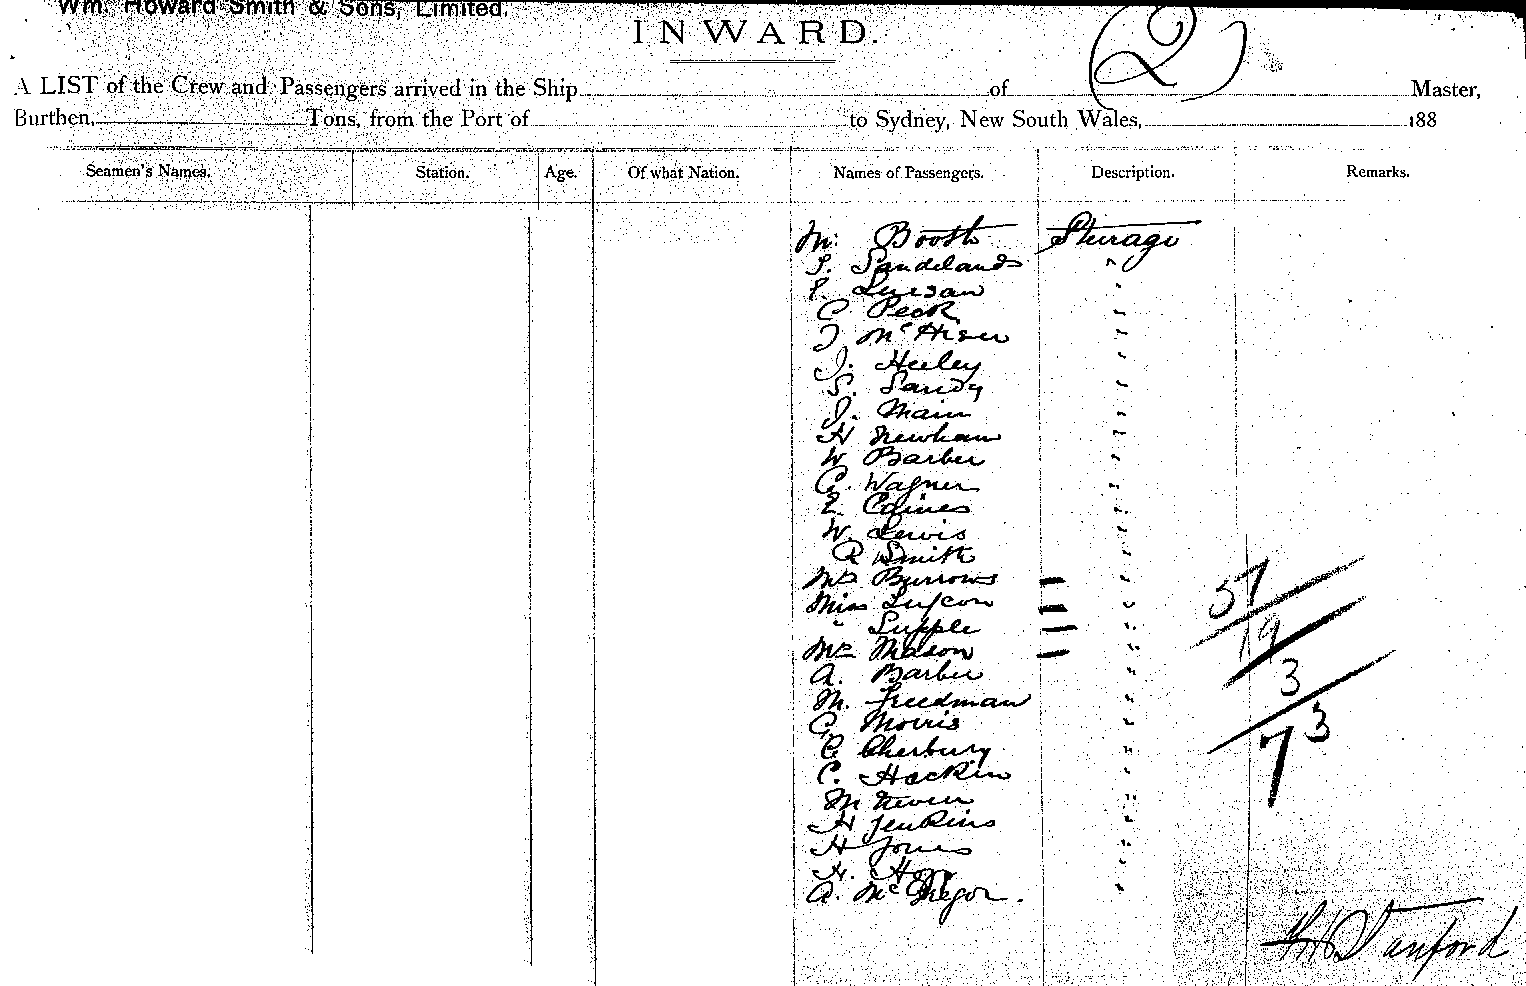 Wm. Howard Smith & Sons, Limited.
INWARD.
(2)
A LIST of the Crew and Passengers arrived in the Ship of Master,
Burthen, Tons, from the Port of to Sydney, New South Wales, 188
Seamen's Names. Station. Age. Of what Nation. Names of Passengers. Description. Remarks.
M. Booth Steerage
S. Sandelands "
P. "
C Peck "
J Mc "
J. Heeley "
S. Sandy "
J. Main "
H Newham "
W Barber "
C. Wagner "
E. Caines "
W. Lewis "
R Smith "
Mrs Burrows — "
Miss — "
" Supple — "
Mrs Mason — "
A. Barber "
M. Freedman "
C. Morris "
C Cherbury "
C. Hackin "
M Niven "
H Jenkins "
H Jones "
H. "
A. McGregor. "
51
19
3
73
Stanford